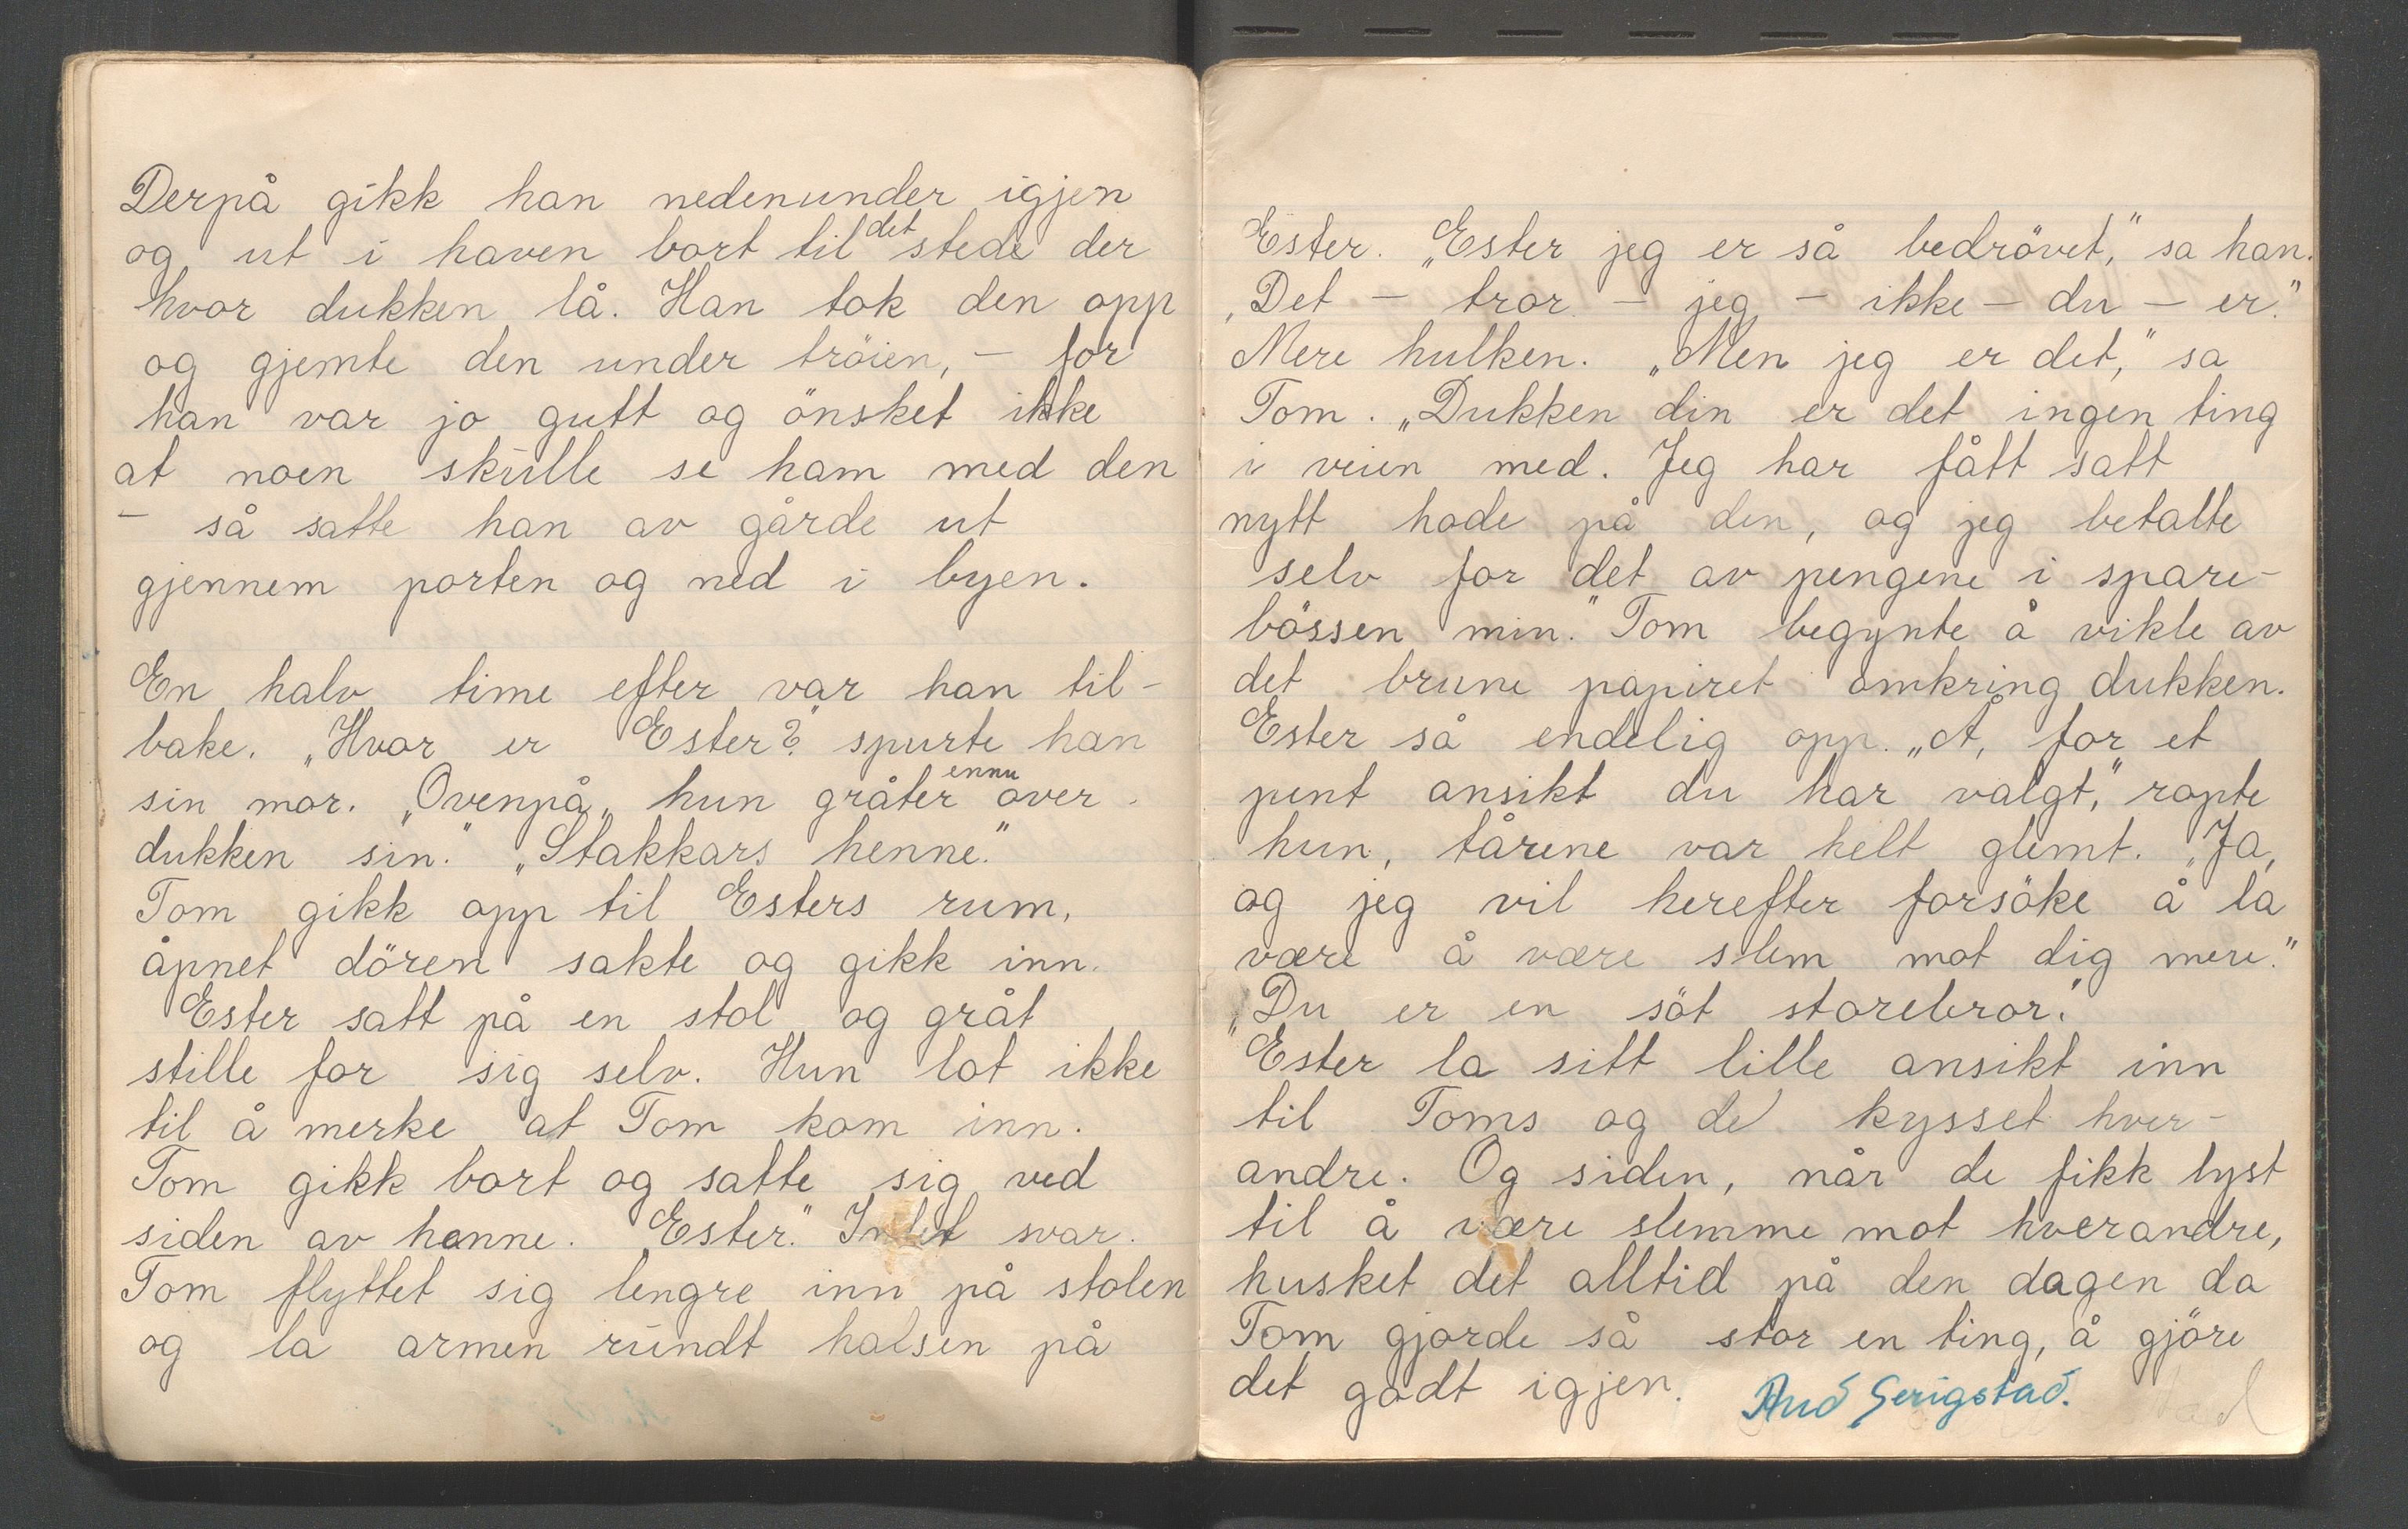 Derpå gikk han nedenunder igjen
og ut i haven bort til det stede der
hvor dukken lå. Han tok den opp
og gjemte den under tröien, – for
han var jo gutt og önsket ikke
at noen skulle se ham med den
– så satte han av gårde ut
gjennem porten og ned i byen.
En halv time efter var han til-
bake. „Hvor er Ester?" spurte han
sin mor. „Ovenpå, hun gråter ennu over
dukken sin." „Stakkars henne."
Tom gikk opp til Esters rum,
åpnet dören sakte og gikk inn.
Ester satt på en stol og gråt
stille for sig selv. Hun lot ikke
til å merke at Tom kom inn.
Tom gikk bort og satte sig ved
siden av henne. „Ester." Intet svar.
Tom flyttet sig lengre inn på stolen
og la armen rundt halsen på
Ester. „Ester jeg er så bedrövet," sa han.
„Det – tror – jeg – ikke – du – er."
Mere hulken. „Men jeg er det," sa
Tom. „Dukken din er det ingen ting
i veien med. Jeg har fått satt
nytt hode på den, og jeg betalte
selv for det av pengene i spare-
bössen min." Tom begynte å vikle av
det brune papiret omkring dukken.
Ester så endelig opp. „Å, for et
pent ansikt du har valgt," ropte
hun, tårene var helt glemt. „Ja,
og jeg vil herefter forsöke å la
være å være slem mot dig mere."
„Du er en söt storebror."
Ester la sitt lille ansikt inn
til Toms og de kysset hver-
andre. Og siden, når de fikk lyst
til å være slemme mot hverandre,
husket det alltid på den dagen da
Tom gjorde så stor en ting, å gjöre
det godt igjen. Aud Serigstad.